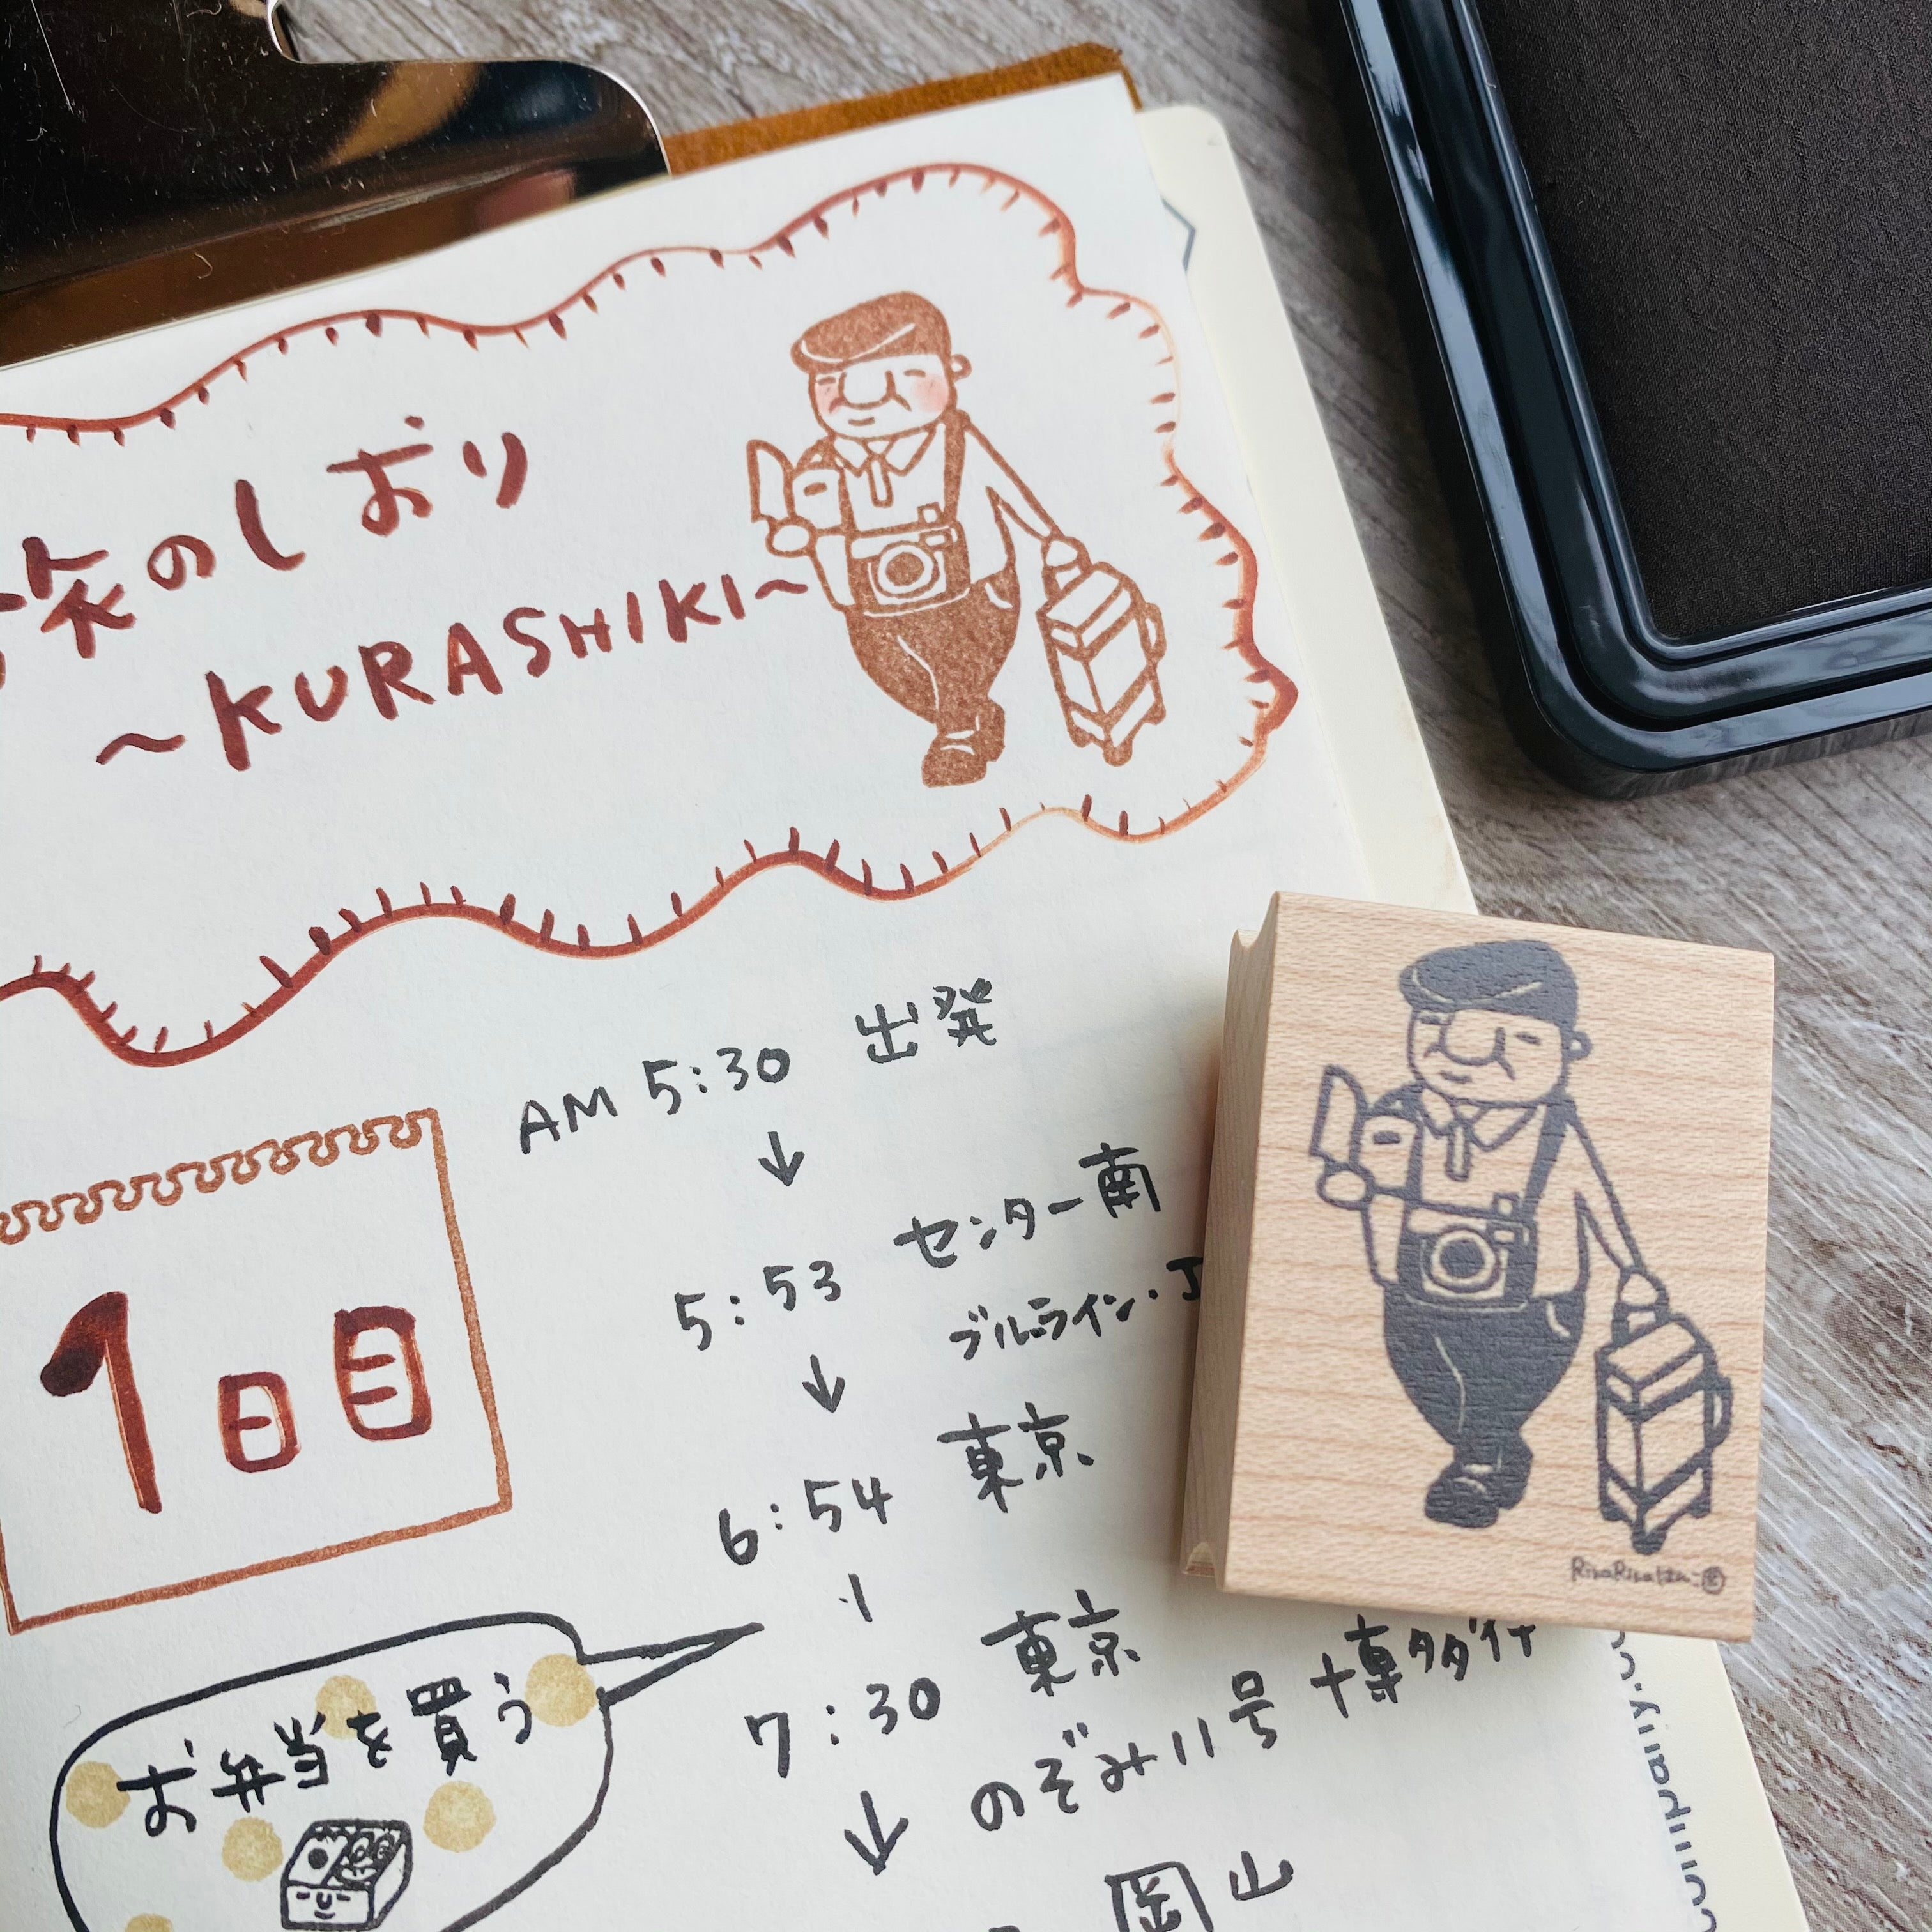 旅のしおり
～KURASHIKI～
AM 5:30 出発
↓
5:53 センター南
ブルーライン・J
↓
6:54 東京
7:30 東京
のぞみ11号 博多行
↓
岡山
1日目
お弁当を買う